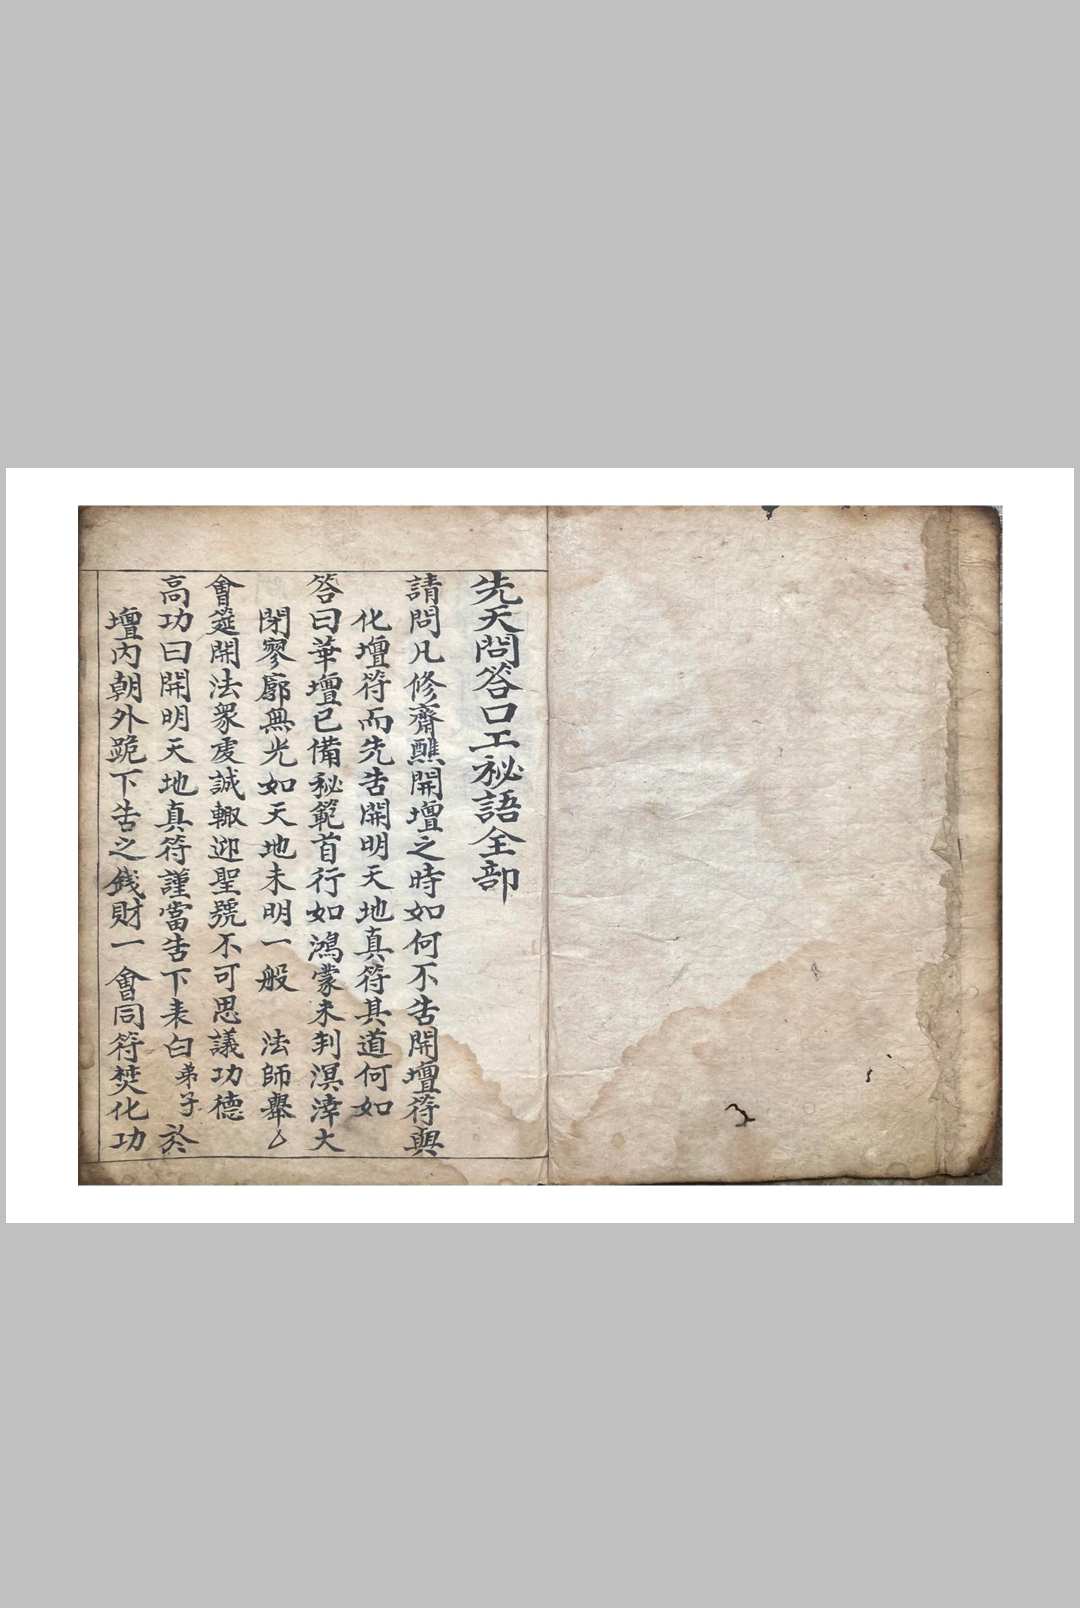 先天問答口工祕語全部
請問凡修齋醮開壇之時如何不告開壇符與
化壇符而先告開明天地真符其道何如
答曰華壇已備秘範首行如鴻蒙未判溟涬大
閉寥廓無光如天地未明一般 法師舉
會筵開法衆虔誠輙迎聖號不可思議功德
高功曰開明天地真符謹當告下表白弟子於
壇內朝外跪下告之錢財一會同符焚化功